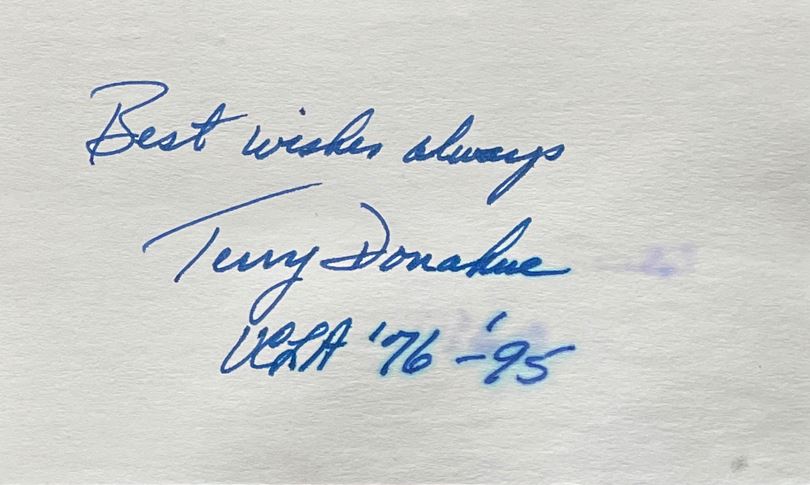 Best wishes always
Terry Donahue
UCLA '76-'95